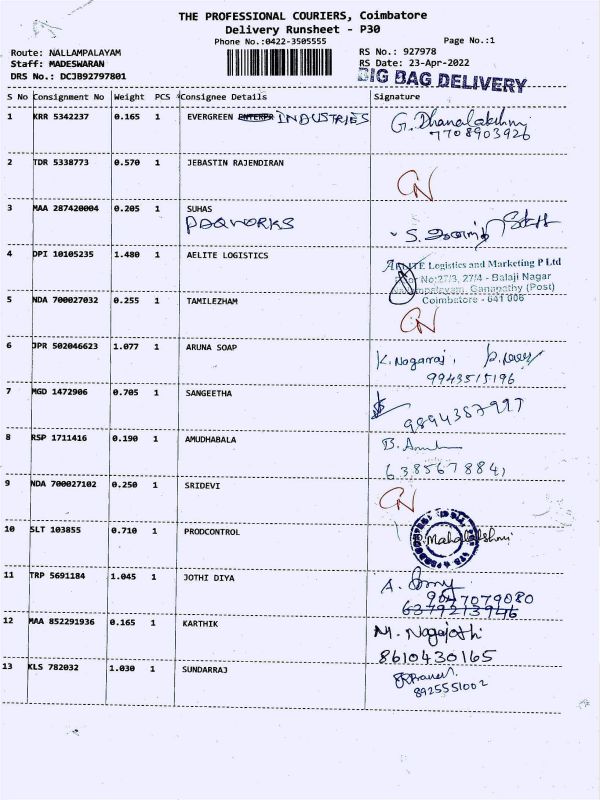 THE PROFESSIONAL COURIERS, Coimbatore
Delivery Runsheet - P30
Phone No.:0422-3505555
Page No.:1
Route: NALLAMPALAYAM
RS No.: 927978
Staff: MADESWARAN
RS Date: 23-Apr-2022
DRS No.: DCJB92797801
BIG BAG DELIVERY
S No Consignment No Weight PCS Consignee Details Signature
1 KRR 5342237 0.165 1 EVERGREEN INDUSTRIES G. Dhanalakshmi
7708903926
2 TDR 5338773 0.570 1 JEBASTIN RAJENDIRAN
CN
3 MAA 287420004 0.205 1 SUHAS
PAQWORKS
4 DPI 10105235 1.480 1 AELITE LOGISTICS
AELITE Logistics and Marketing P Ltd
Door No:27/3, 27/4 - Balaji Nagar
Ganapathy (Post)
Coimbatore - 641 006
5 NDA 700027032 0.255 1 TAMILEZHAM
CN
6 JPR 502046623 1.077 1 ARUNA SOAP K. Nagarraj,
9943515196
7 MGD 1472906 0.705 1 SANGEETHA
8 RSP 1711416 0.190 1 AMUDHABALA
6385678841
9 NDA 700027102 0.250 1 SRIDEVI
CN
10 SLT 103855 0.710 1 PRODCONTROL
Mahalakshmi
11 TRP 5691184 1.045 1 JOTHI DIYA
12 MAA 852291936 0.165 1 KARTHIK M. Nagajothi
8610430165
13 KLS 782032 1.030 1 SUNDARRAJ
8925551002